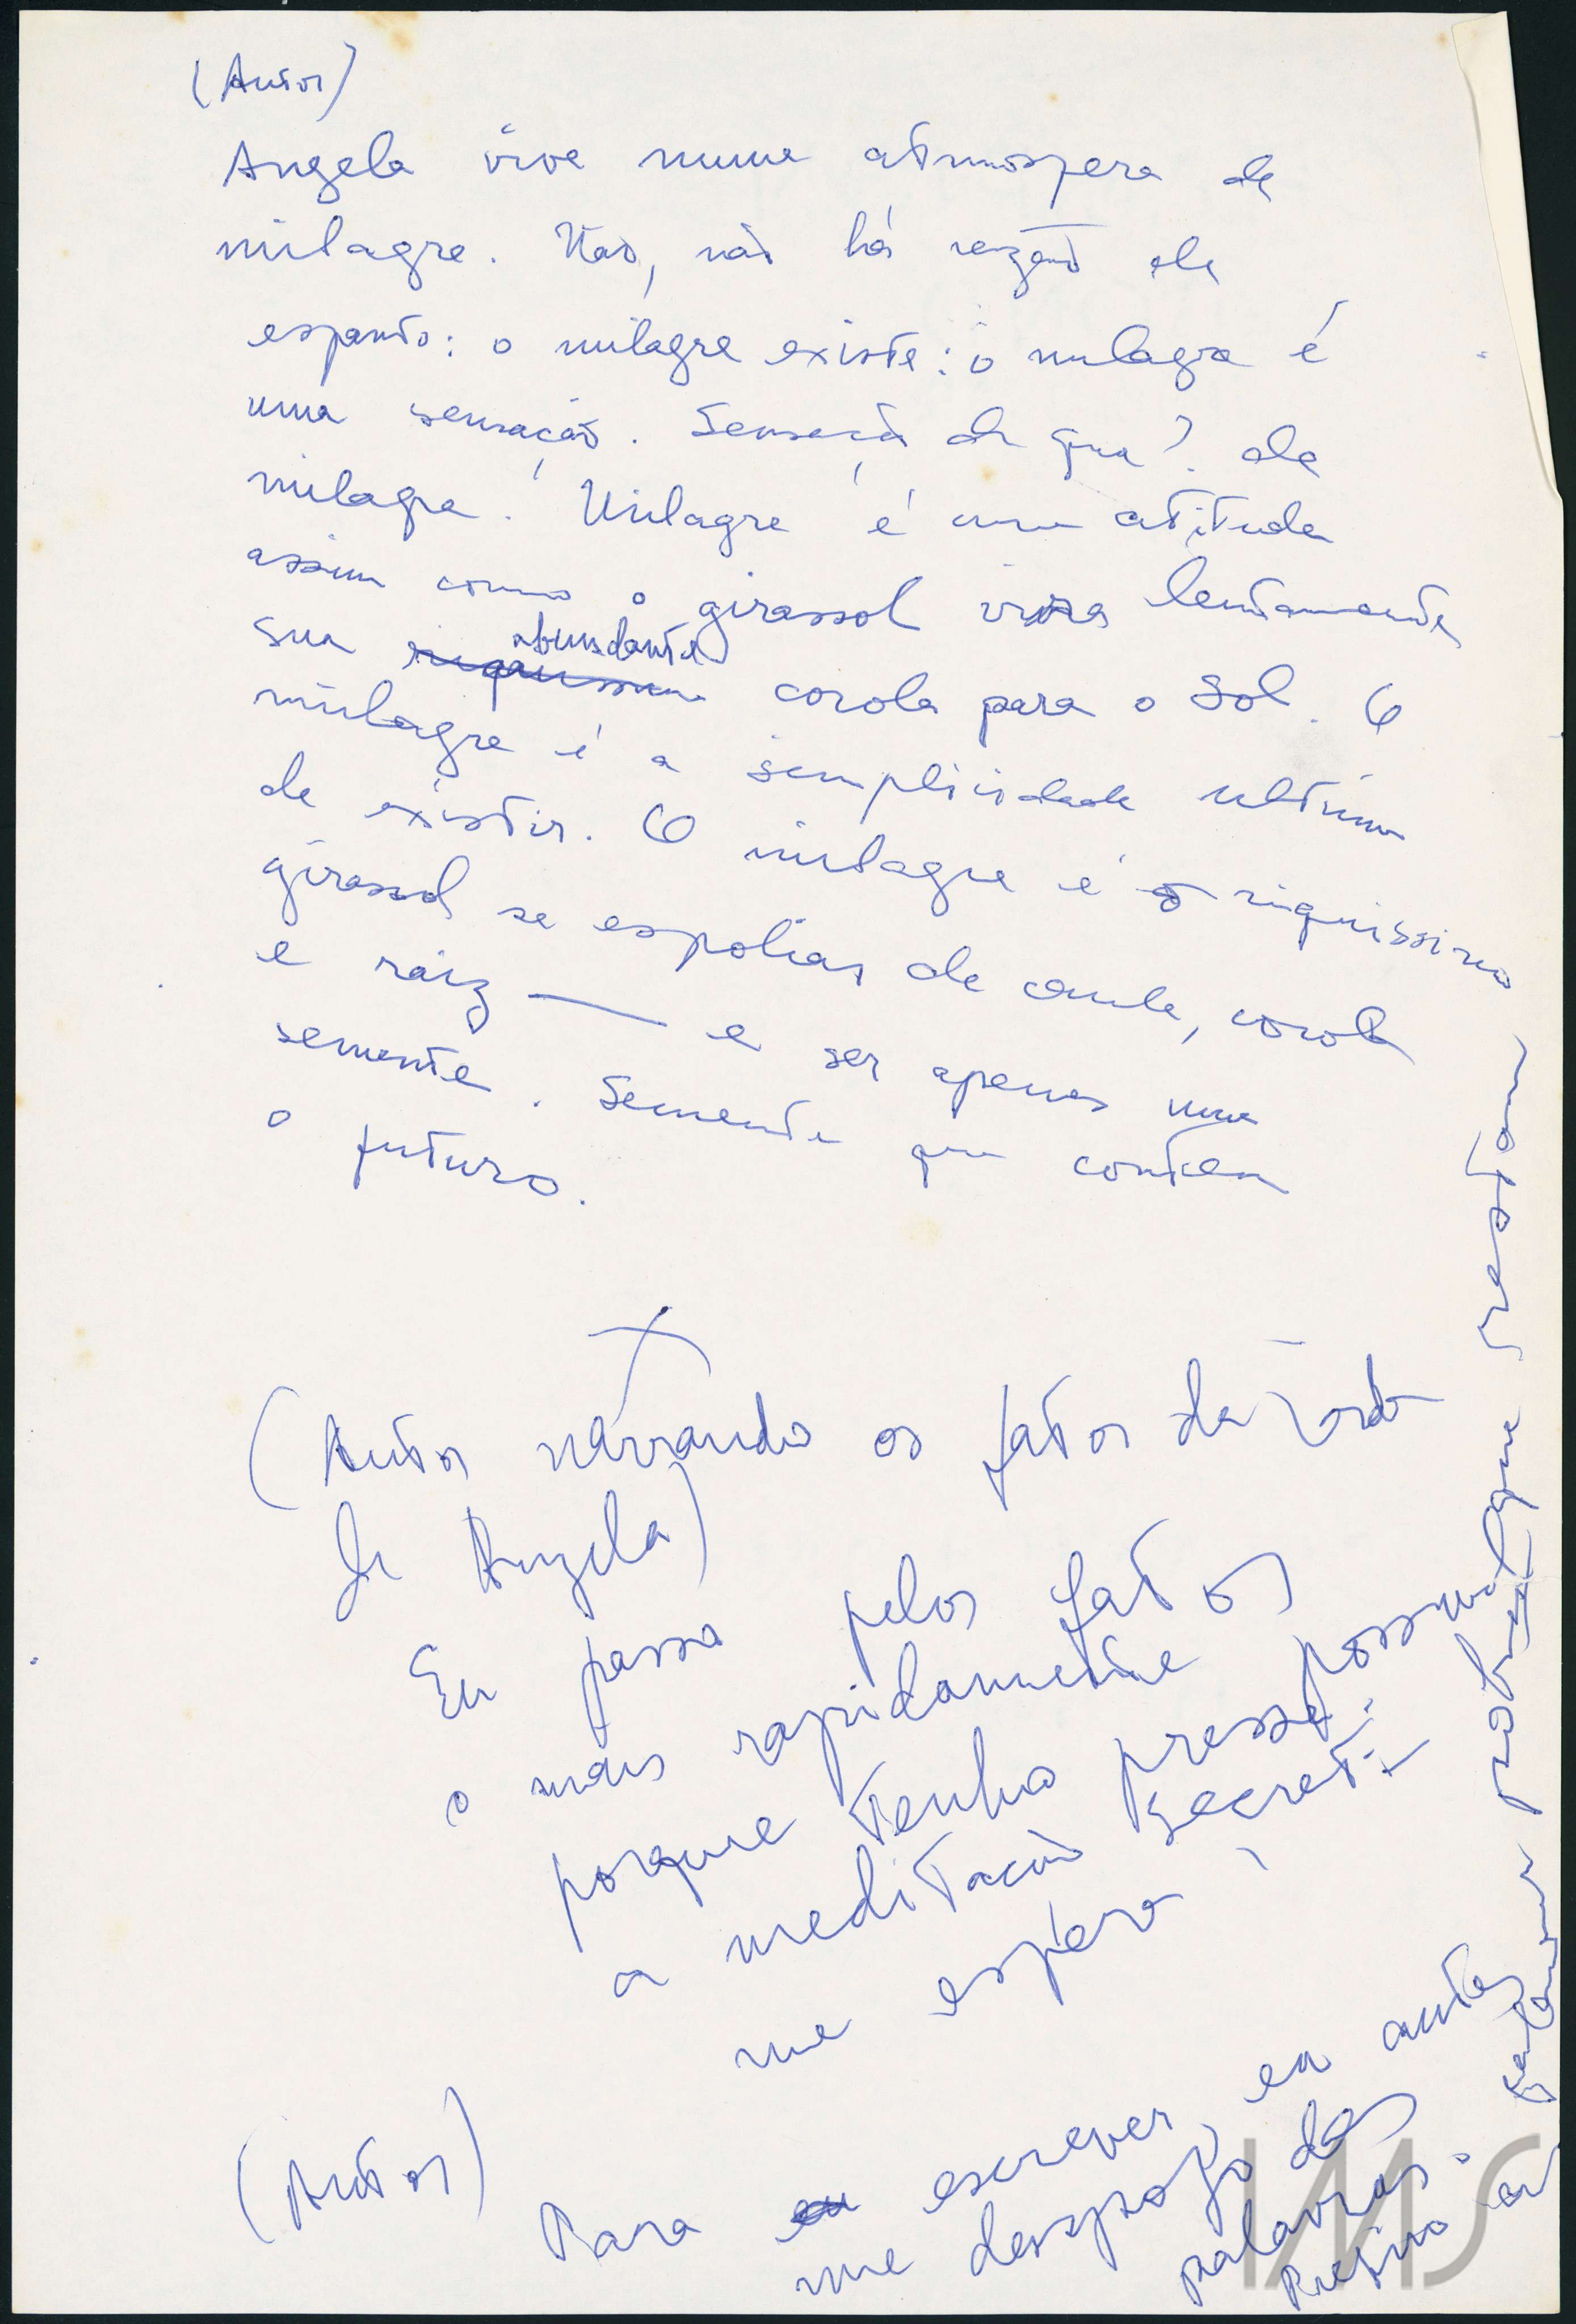 (Autor)
Angela vive numa atmosfera de
milagre. Não, não há razão de
espanto: o milagre existe: o milagre é
uma sensação. Sensação de que? de
milagre. Milagre é uma atitude
assim como o girassol vira lentamente
sua abundante corola para o Sol. O
milagre é a simplicidade ultima
de existir. O milagre é o riquissimo
girassol se espoliar de caule, corola
e raiz — e ser apenas uma
semente. Semente que contem
o futuro.
(Autor narrando os fatos da vida
de Angela)
Eu passo pelos fatos
o mais rapidamente possivel
porque tenho pressa.
a meditação secreta
me espera
(Autor)
Para escrever, eu antes
me despojo das
palavras.
Prefiro as palavras pobres que restam
IMS